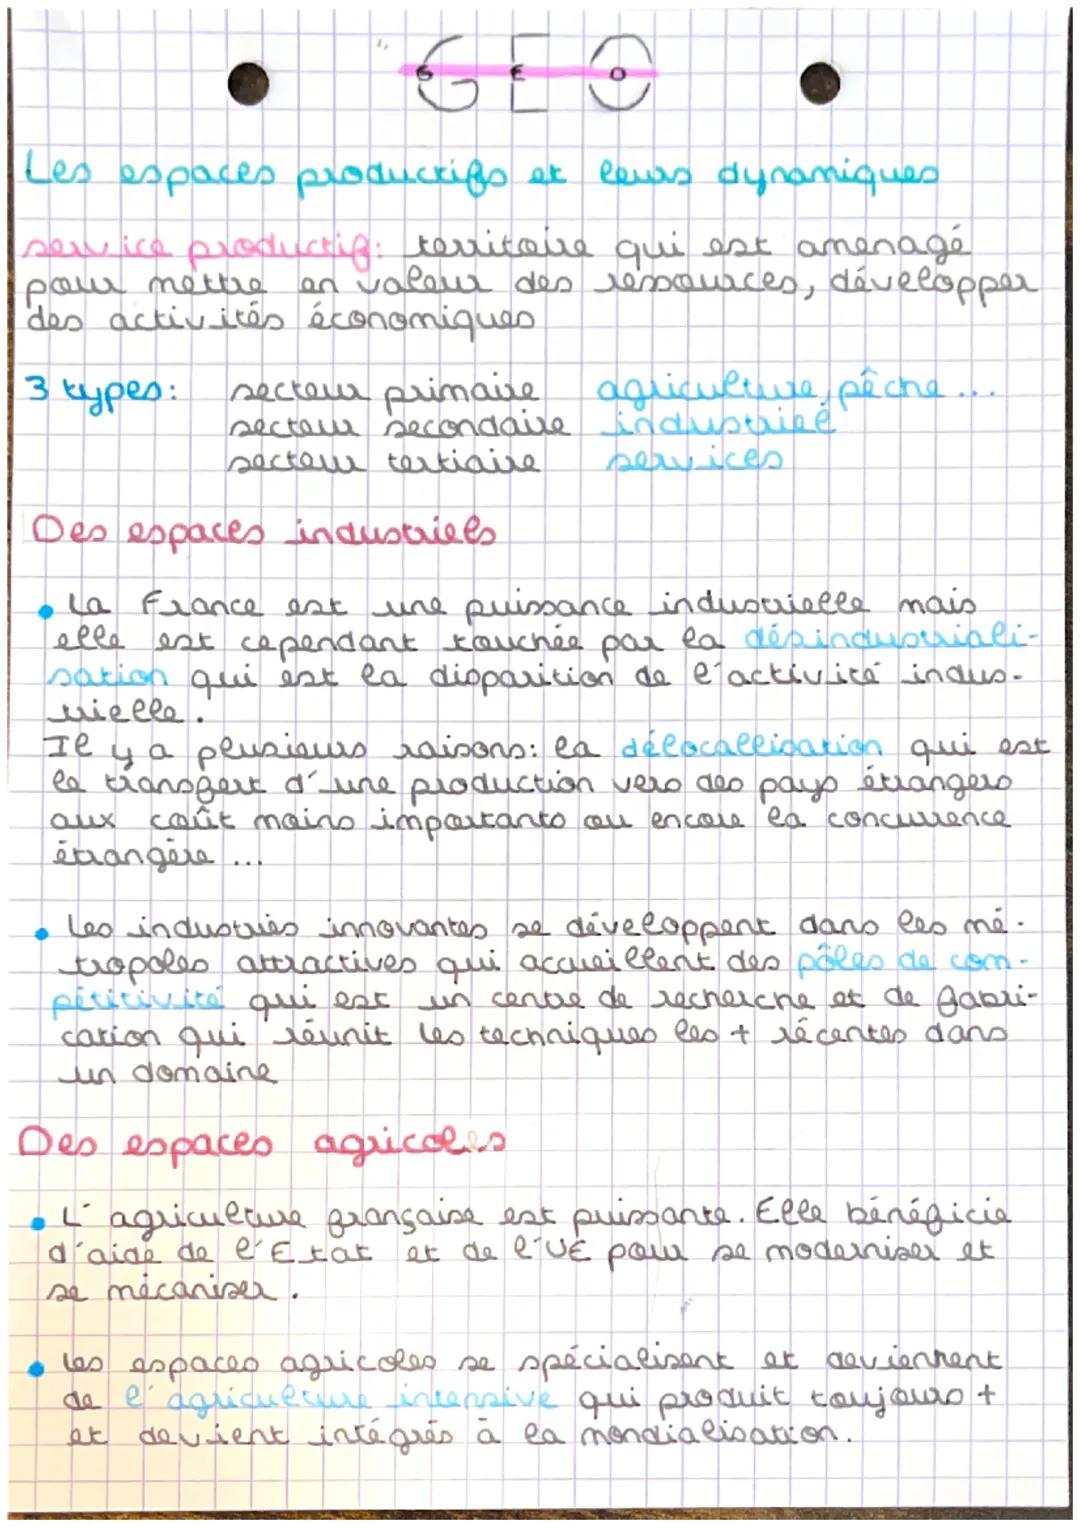 GEO
Les espaces productifs et leurs dynamiques
service productif: territoire qui est aménagé
pour mettre en valeur des ressources, développer
des activités économiques
3 types: secteur primaire agriculture, pêche...
secteur secondaire industrie
secteur tertiaire services
Des espaces industriels
La France est une puissance industrielle mais
elle est cependant touchée par la désindustriali-
sation qui est la disparition de l'activité indus-
trielle.
Il y a plusieurs raisons: la délocallisation qui est
le transfert d'une production vers des pays étrangers
aux coût moins importants ou encore la concurrence
étrangère ...
Les industries innovantes se développent dans les mé-
tropoles attractives qui accueillent des pôles de com-
pétitivité qui est un centre de recherche et de fabri-
cation qui réunit les techniques les + récentes dans
un domaine
Des espaces agricoles
L'agriculture française est puissante. Elle bénéficie
d'aide de l'Etat et de l'UE pour se moderniser et
se mécaniser.
Les espaces agricoles se spécialisent et deviennent
de l'agriculture intensive qui produit toujours +
et devient intégrés à la mondialisation.